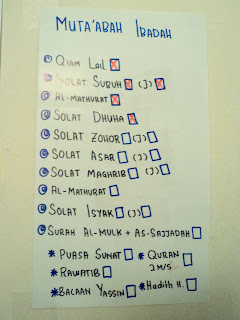 MUTA'ABAH IBADAH
QIAM LAIL
SOLAT SUBUH (J)
AL-MATHURAT
SOLAT DHUHA
SOLAT ZOHOR (J)
SOLAT ASAR (J)
SOLAT MAGHRIB (J)
AL-MATHURAT
SOLAT ISYAK (J)
SURAH AL-MULK + AS-SAJJADAH
* PUASA SUNAT * QURAN
2 M/S
* RAWATIB
* BACAAN YASSIN * Hadith H.